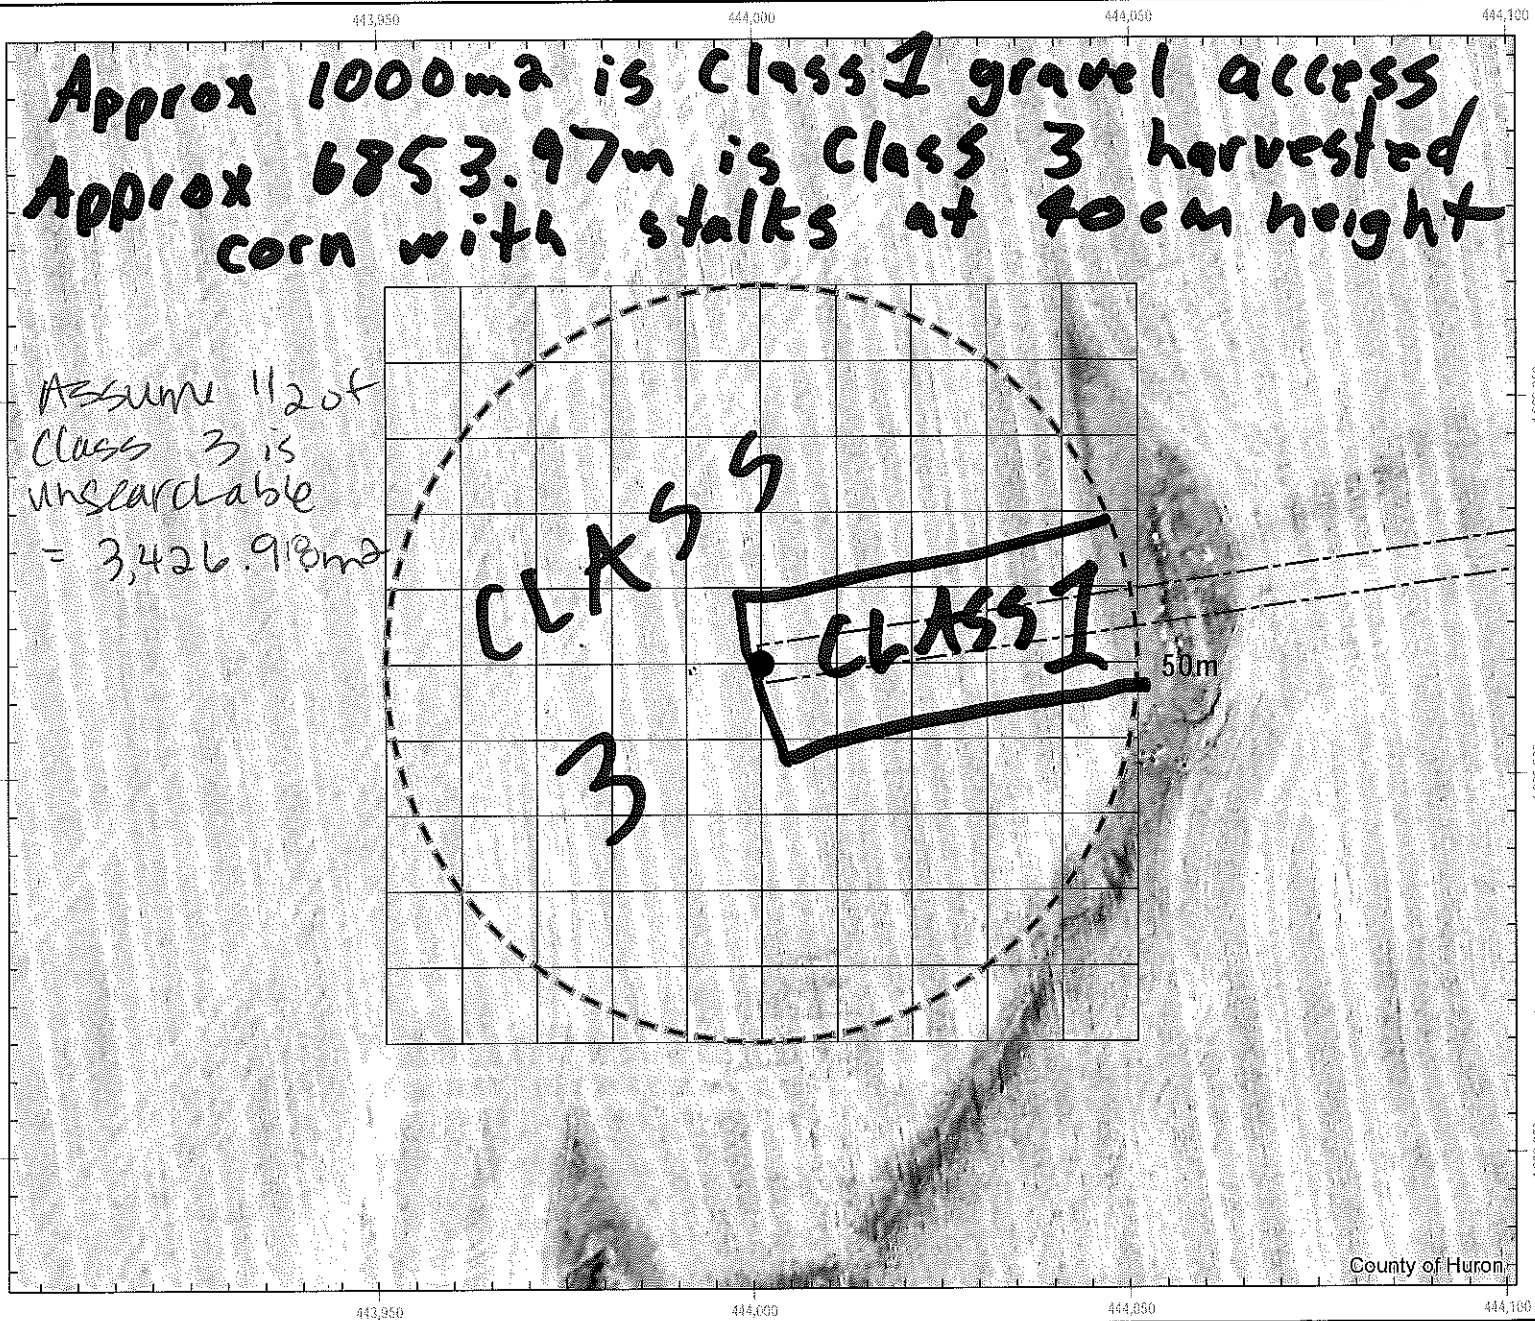 443,950 444,000 444,050 444,100
Approx 1000m2 is Class 1 gravel access
Approx 6853.97m is Class 3 harvested
corn with stalks at 40cm height
Assume 1/2 of
Class 3 is
unsearchable
= 3,426.918m2
CLASS
3
CLASS 1
50m
County of Huron
443,950 444,000 444,050 444,100